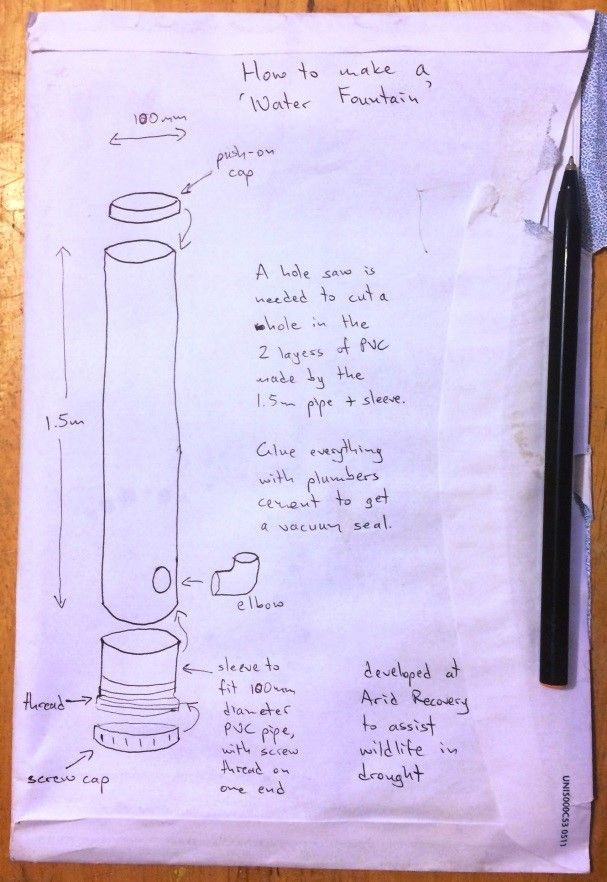 How to make a
'Water Fountain'
100mm
push-on
cap
A hole saw is
needed to cut a
hole in the
2 layess of PVC
made by the
1.5m pipe + sleeve.
1.5m
Glue everything
with plumbers
cement to get
a vacuum seal.
elbow
sleeve to
fit 100mm
diameter
PVC pipe,
with screw
thread on
one end
thread
screw cap
developed at
Arid Recovery
to assist
wildlife in
drought
UNI5000C53 0511